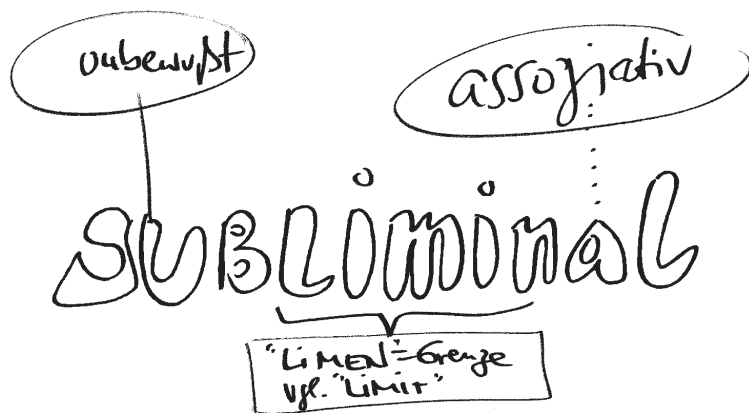 unbewußt
assoziativ
SUBLiminaL
"LiMEN"=Grenze
vgl. "LiMiT"